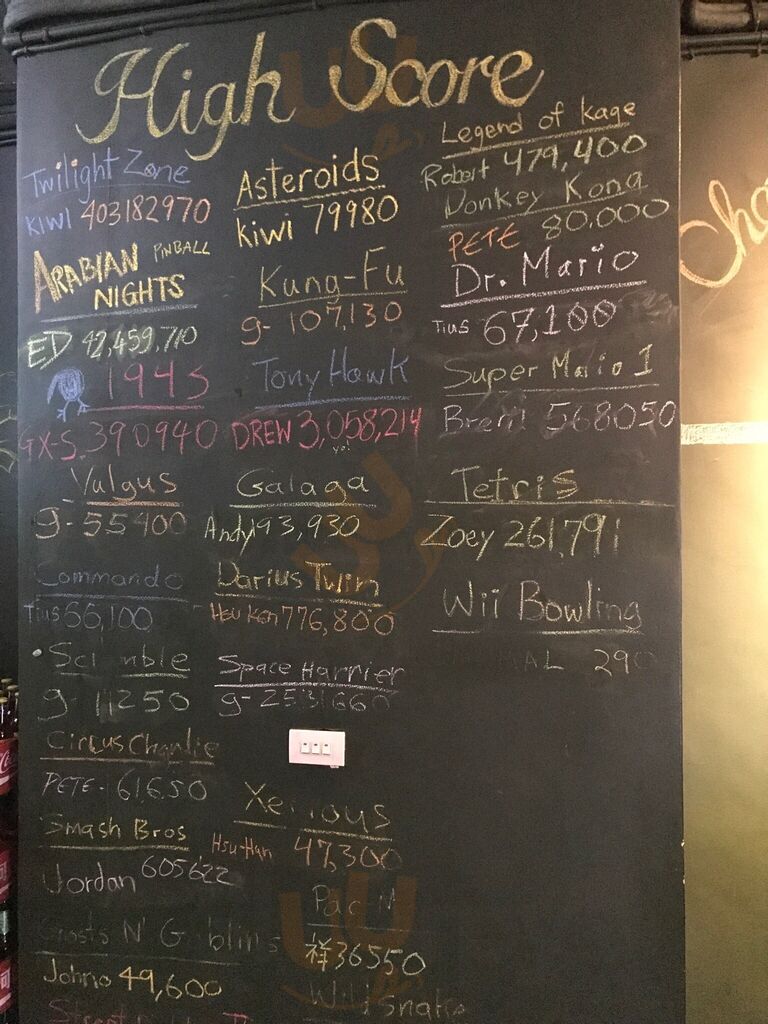 High Score
Twilight Zone
Kiwi 403182970
ARABIAN
PINBALL
NIGHTS
ED 42,459,710
1943
GX-S. 390940
Vulgus
g- 55400
Commando
Titus 66,100
Sc mble
g- 11250
Circus Charlie
PETE - 61650
Smash Bros
Jordan 605622
osts N' G blins
Johno 49,600
Street
Asteroids
Kiwi 79980
Kung-Fu
g- 107,130
Tony Hawk
DREW 3,058,214
yo!
Galaga
Andy 93,930
Darius Twin
Hsu Han 776,800
Space Harrier
g-
Xe ious
Hsu-Han 47,300
Pac M
祥 36550
Wild Snake
Legend of Kage
Robert 479,400
Donkey Kong
PETE 80,000
Dr. Mario
Titus 67,100
Super Mario 1
Brent 568050
Tetris
Zoey 261,791
Wii Bowling
AL 290
Cho